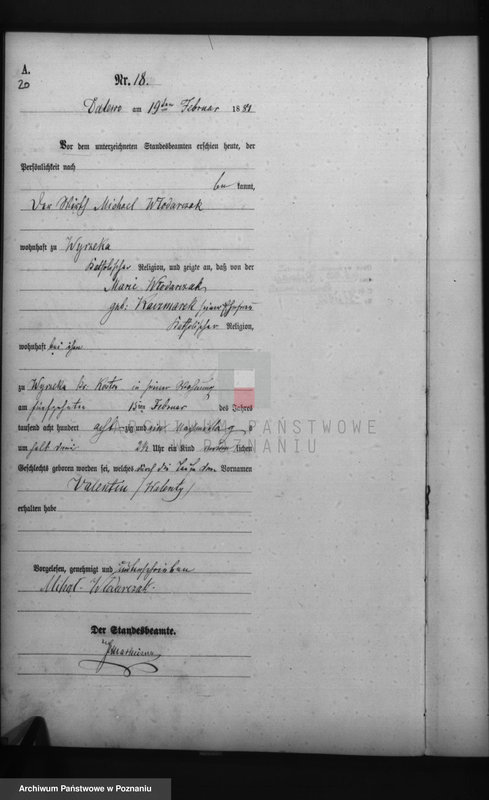 A.
20
Nr. 18.
Dalewo am 19ten Februar 1881
Vor dem unterzeichneten Standesbeamten erschien heute, der
Persönlichkeit nach
be kannt,
Der Wirth Michael Włodarczak
wohnhaft zu Wyrzeka
katholischer Religion, und zeigte an, daß von der
Marie Włodarczak,
geb: Kaczmarek seiner Ehefrau
katholischer Religion,
wohnhaft bei ihm
zu Wyrzeka Kr. Kosten in seiner Wohnung
am fünfzehnten 15ten Februar des Jahres
tausend acht hundert achtzig und ein Nachmittags
um halb drei 2½ Uhr ein Kind männlichen
Geschlechts geboren worden sei, welches durch die Taufe den Vornamen
Valentin (Walenty)
erhalten habe
Vorgelesen, genehmigt und unterschrieben
Michał Włodarczak.
Der Standesbeamte.
ARCHIWUM PAŃSTWOWE
W POZNANIU
Archiwum Państwowe w Poznaniu